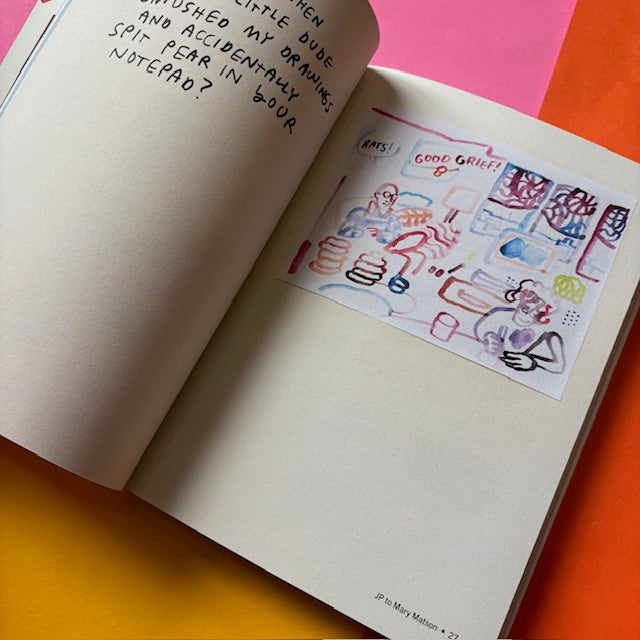 HEN
LITTLE DUDE
MY DRAWINGS
AND ACCIDENTALLY
SPIT PEAR IN YOUR
NOTEPAD?
RATS!
GOOD GRIEF!
JP to Mary Matson •